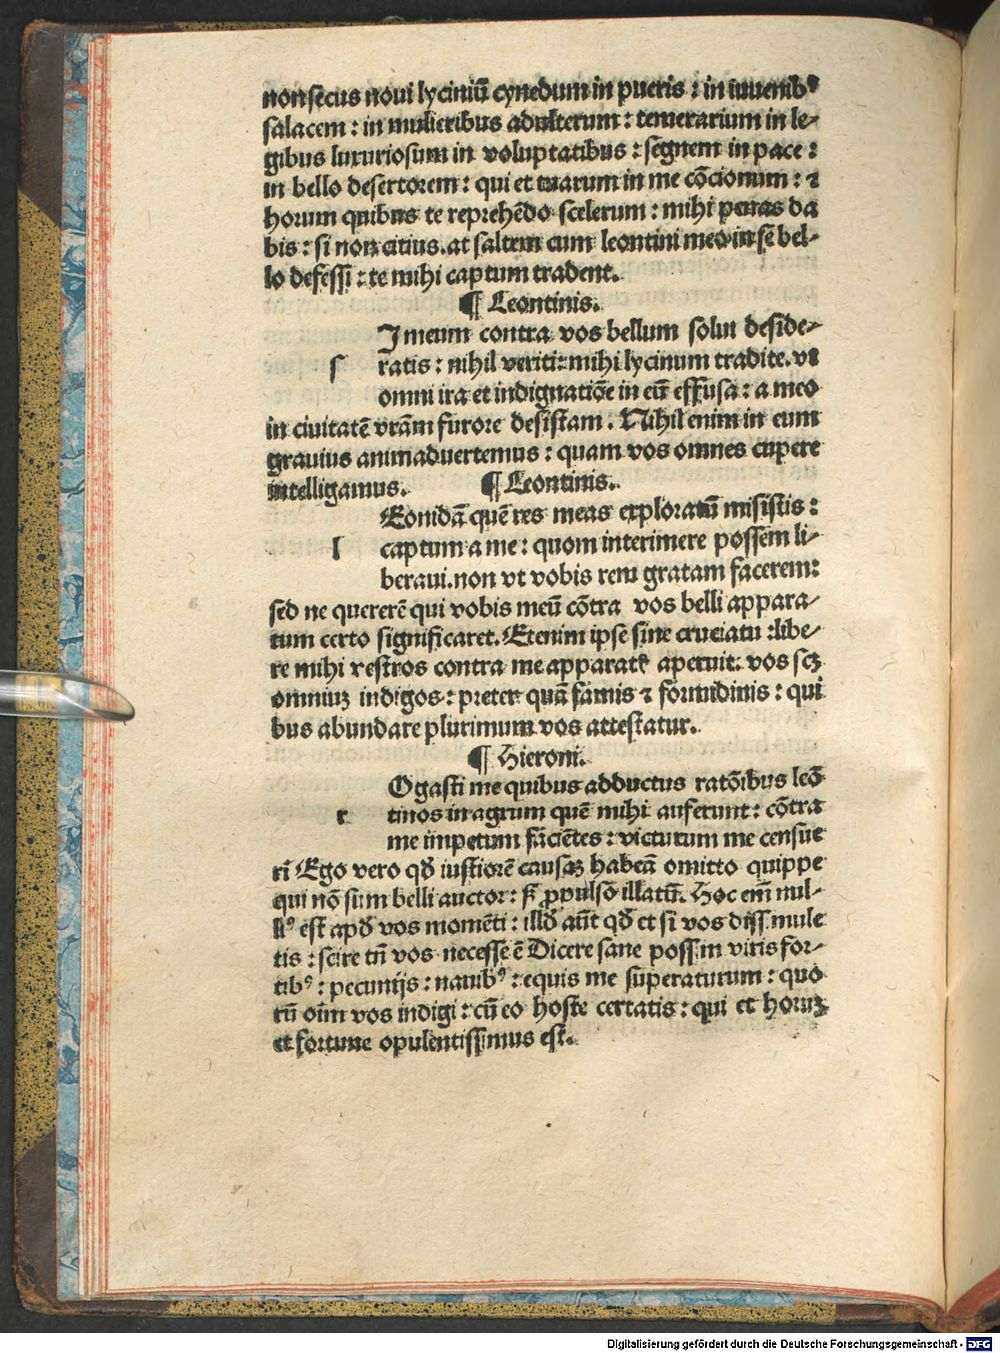 non secus noui lyciniū cynedum in pueris : in iuuenibꝰ
salacem : in mulieribus adulterum : temerarium in le⸗
gibus luxuriosum in voluptatibus : segnem in pace :
in bello desertorem : qui et tuarum in me cōcionum : ⁊
horum quibus te reprehēdo scelerum : mihi penas da
bis : si non citius. at saltem cum leontini meo in sē bel⸗
lo defessi : te mihi captum tradent.
¶ Leontinis.
I meum contra vos bellum solui deside⸗
s ratis : nihil veriti : mihi lycinum tradite. vt
omni ira et indignatiōe in eū effusa : a meo
in ciuitatē vr̄am furore desistam. Nihil enim in eum
grauius animaduertemus : quam vos omnes cupere
intelligamus. ¶ Leontinis.
Eonidā quē res meas exploratū misistis :
l captum a me : quom interimere possem li⸗
beraui. non vt vobis rem gratam facerem :
sed ne quererē qui vobis meū cōtra vos belli appara⸗
tum certo significaret. Etenim ipse sine cruciatu : libe⸗
re mihi vestros contra me apparatꝰ aperuit. vos scꝫ
omniuꝫ indigos : preter quā famis ⁊ formidinis : qui
bus abundare plurimum vos attestatur.
¶ Hieroni.
Ogasti me quibus adductus ratōibus leō
r tinos in agrum quē mihi auferunt : cōtra
me impetum faciētes : victurum me censue
rī Ego vero qď iustiorē causaꝫ habeā omitto quippe
qui nō sum belli auctor : ſꝫ ꝓpulsō illatū. Hoc em̄ nul⸗
liꝰ est apď vos momēti : illď aūt qď et si vos dissimule
tis : scire tn̄ vos necesse ē Dicere sane possim viris for⸗
tibꝰ : pecunijs : nauibꝰ : equis me superaturum : quo
rū oīm vos indigi : cū eo hoste certatis : qui et horuꝫ
et fortune opulentissimus est.
Digitalisierung gefördert durch die Deutsche Forschungsgemeinschaft - DFG